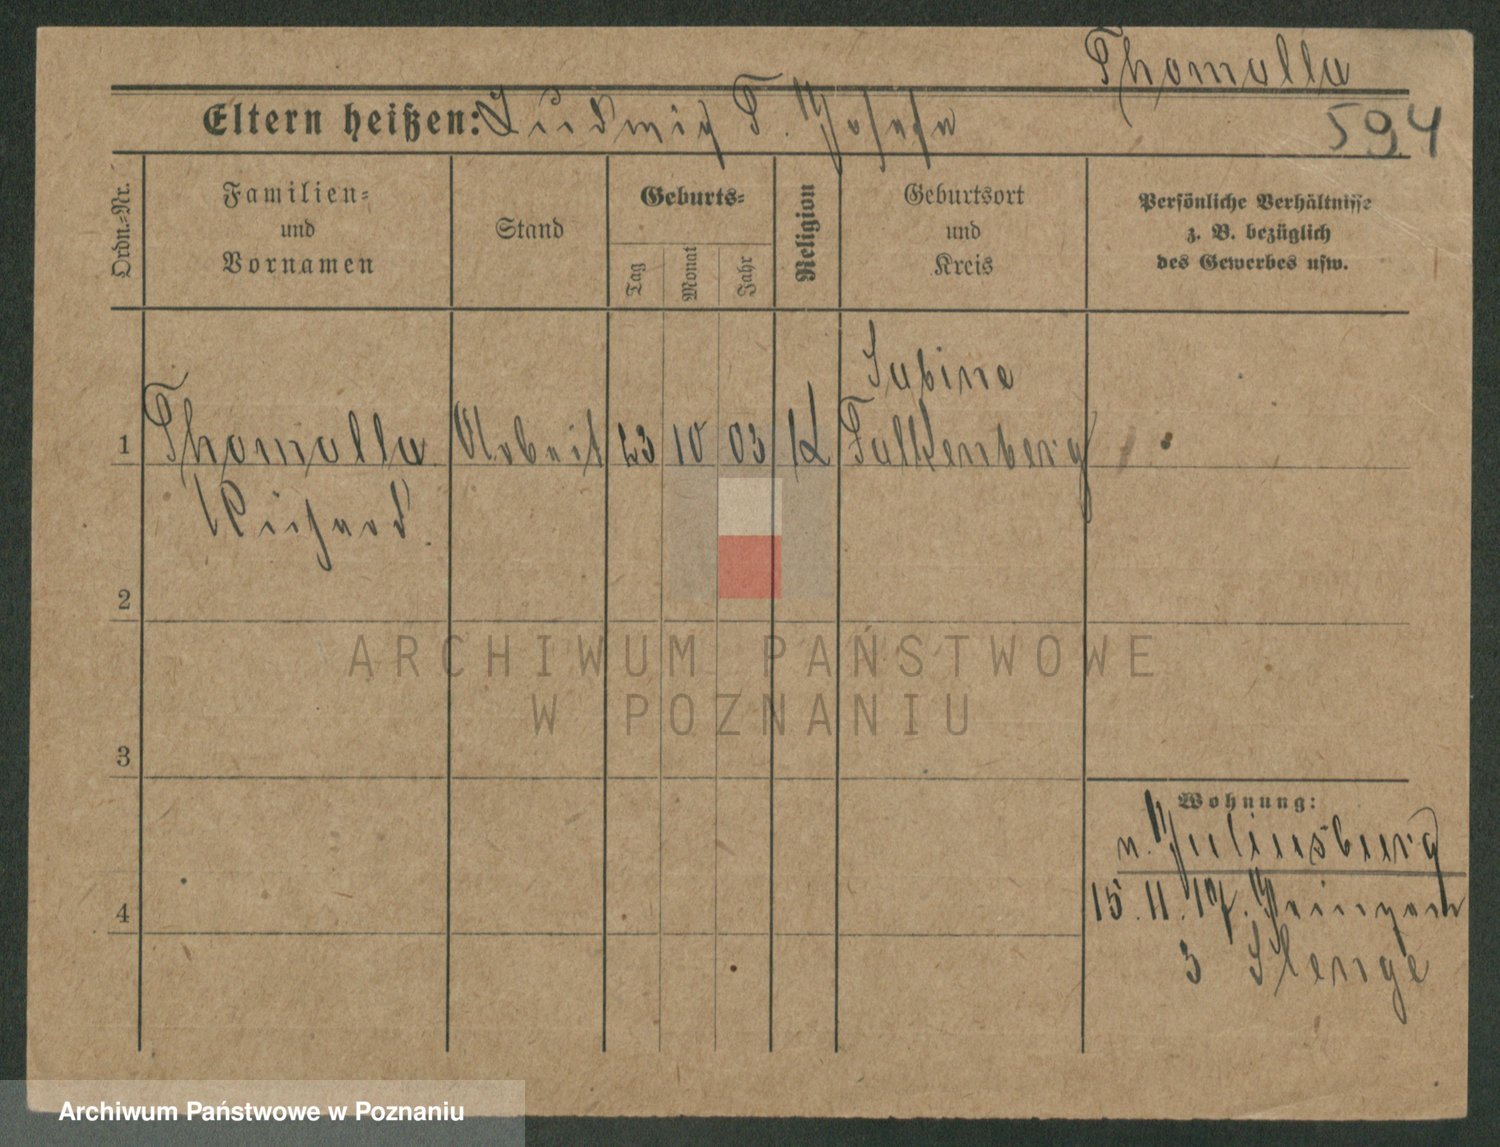 Thomalla
594
Eltern heißen: Ludwig T. Josefa
Ordn.-Nr.
Familien-
und
Vornamen
Stand
Geburts-
Tag
Monat
Jahr
Religion
Geburtsort
und
Kreis
Persönliche Verhältnisse
z. B. bezüglich
des Gewerbes usw.
Sabine
1 Thomalla Arbeit 23 10 03 K Falkenberg
Richard
2
3
4
Wohnung:
n. Juliusburg
15. 11. 17.
3
ARCHIWUM PAŃSTWOWE
W POZNANIU
Archiwum Państwowe w Poznaniu